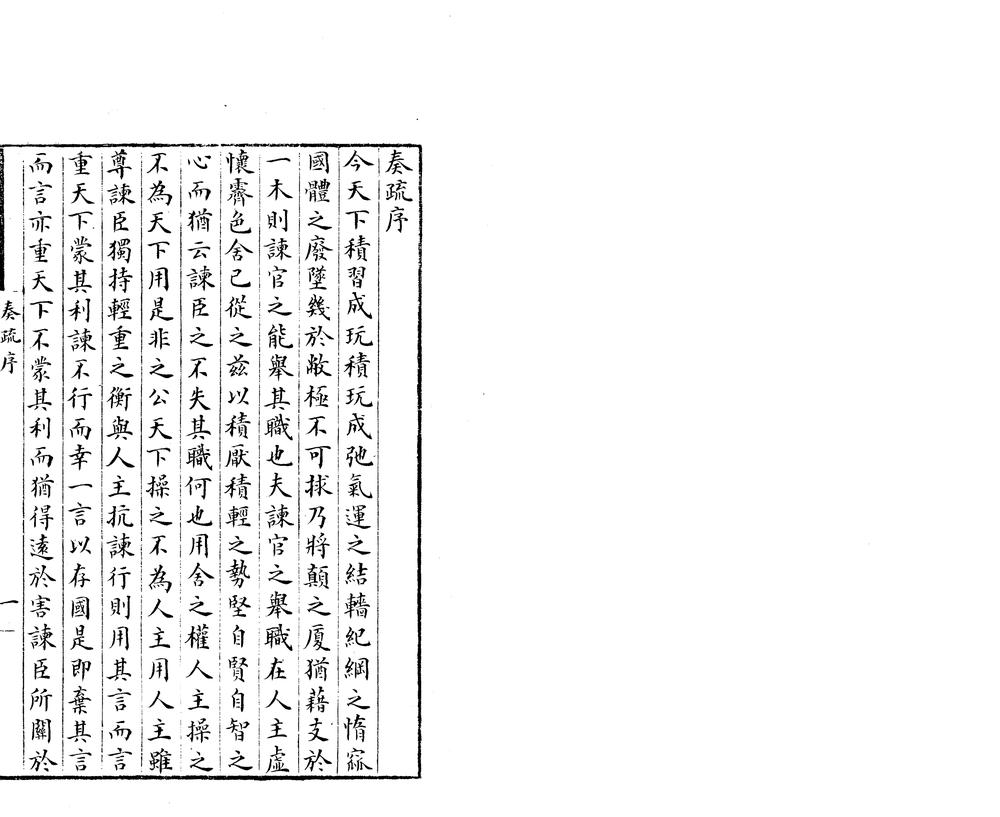 奏疏序
今天下積習成玩積玩成弛氣運之結轖紀綱之惰窳
國體之廢墜幾於敝極不可捄乃將顛之厦猶藉支於
一木則諫官之能舉其職也夫諫官之舉職在人主虛
懷霽色舍己從之兹以積厭積輕之勢堅自賢自智之
心而猶云諫臣之不失其職何也用舍之權人主操之
不為天下用是非之公天下操之不為人主用人主雖
尊諫臣獨持輕重之衡與人主抗諫行則用其言而言
重天下蒙其利諫不行而幸一言以存國是即棄其言
而言亦重天下不蒙其利而猶得遠於害諫臣所關於
奏疏序
一